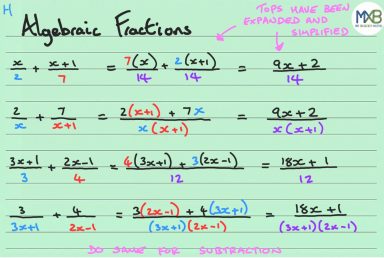 H
Algebraic Fractions
TOPS HAVE BEEN
EXPANDED AND
SIMPLIFIED
MXB
x/2 + (x+1)/7 = 7(x)/14 + 2(x+1)/14 = (9x+2)/14
2/x + 7/(x+1) = (2(x+1) + 7x)/(x(x+1)) = (9x+2)/(x(x+1))
(3x+1)/3 + (2x-1)/4 = (4(3x+1) + 3(2x-1))/12 = (18x+1)/12
3/(3x+1) + 4/(2x-1) = (3(2x-1) + 4(3x+1))/((3x+1)(2x-1)) = (18x+1)/((3x+1)(2x-1))
DO SAME FOR SUBTRACTION